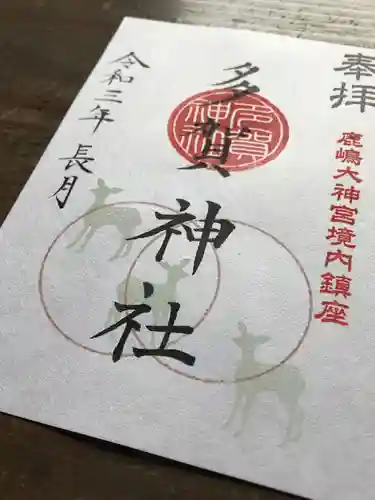 奉拝
鹿嶋大神宮境内鎮座
多賀神社
多賀神社
令和三年 長月